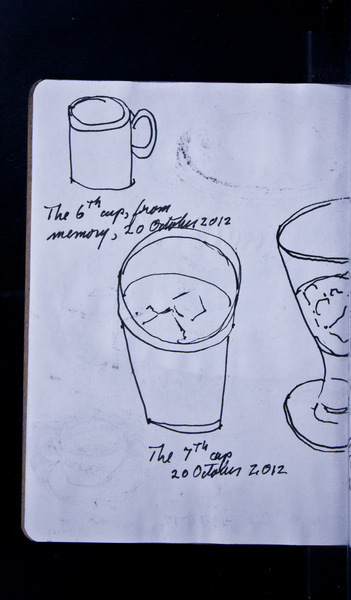 The 6th cup, from
memory, 20 October 2012
The 7th cup
20 October 2012